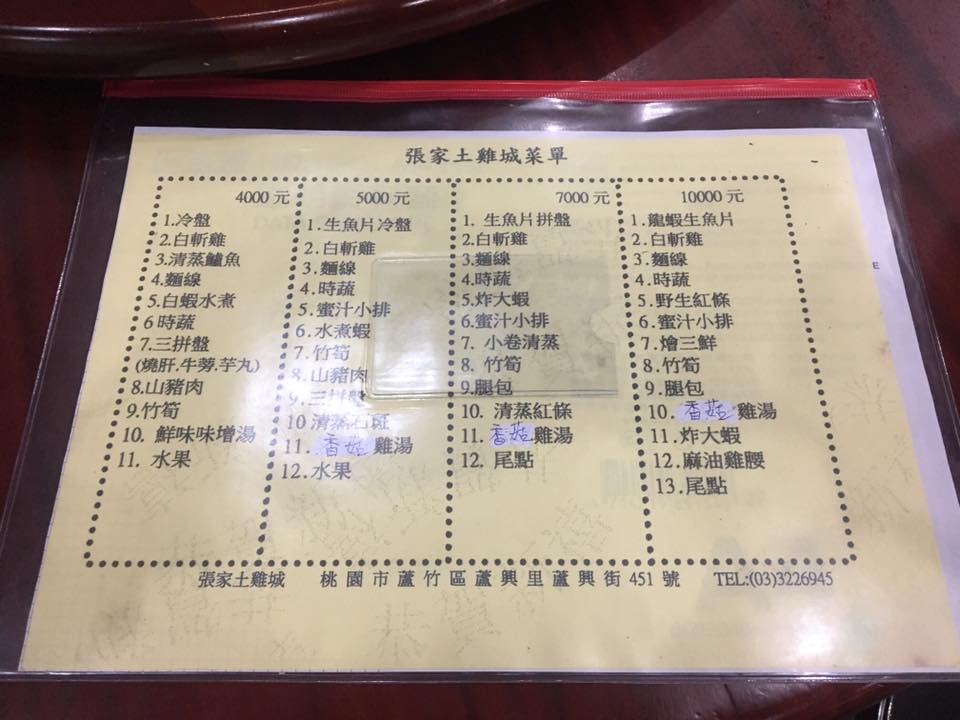 張家土雞城菜單
4000 元
1.冷盤
2.白斬雞
3.清蒸鱸魚
4.麵線
5.白蝦水煮
6 時蔬
7.三拼盤
(燒肝.牛蒡.芋丸)
8.山豬肉
9.竹筍
10. 鮮味味增湯
11. 水果
5000 元
1.生魚片冷盤
2.白斬雞
3.麵線
4.時蔬
5.蜜汁小排
6.水煮蝦
7.竹筍
8.山豬肉
9.三拼盤
10 清蒸石斑
11.香菇雞湯
12.水果
7000 元
1. 生魚片拼盤
2.白斬雞
3.麵線
4.時蔬
5.炸大蝦
6.蜜汁小排
7. 小卷清蒸
8. 竹筍
9.腿包
10. 清蒸紅條
11.香菇雞湯
12. 尾點
10000 元
1.龍蝦生魚片
2.白斬雞
3.麵線
4.時蔬
5.野生紅條
6.蜜汁小排
7.燴三鮮
8.竹筍
9.腿包
10.香菇雞湯
11.炸大蝦
12.麻油雞腰
13.尾點
張家土雞城 桃園市蘆竹區蘆興里蘆興街 451 號 TEL:(03)3226945